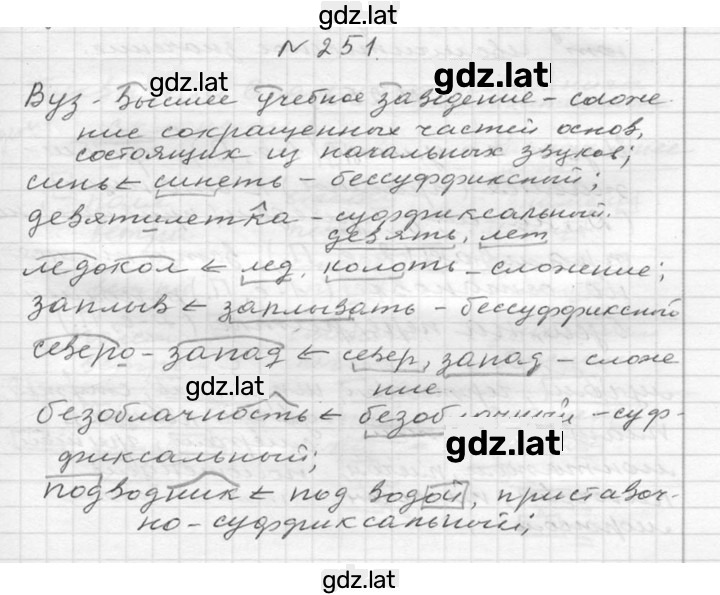 gdz.lat
N 251.
gdz.lat
gdz.lat
Вуз - Высшее учебное заведение - сложе
ние сокращенных частей основ,
состоящих из начальных звуков;
синь ← синеть - бессуффиксный;
девятилетка - суффиксальный.
девять, лет
ледокол ← лед, колоть - сложение;
заплыв ← заплывать - бессуффиксный
северо-запад ← север, запад - сложе
ние
gdz.lat
безоблачность ← - суф-
фиксальный;
gdz.lat
подводник ← под водой, приставоч-
но-суффиксальный;
gdz.lat